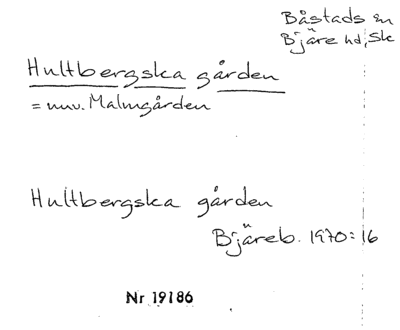 Båstads sn
Bjäre hd, Sk
Hultbergska gården
= nuv. Malmgården
Hultbergska gården
Bjäreb. 1970:16
Nr 19186